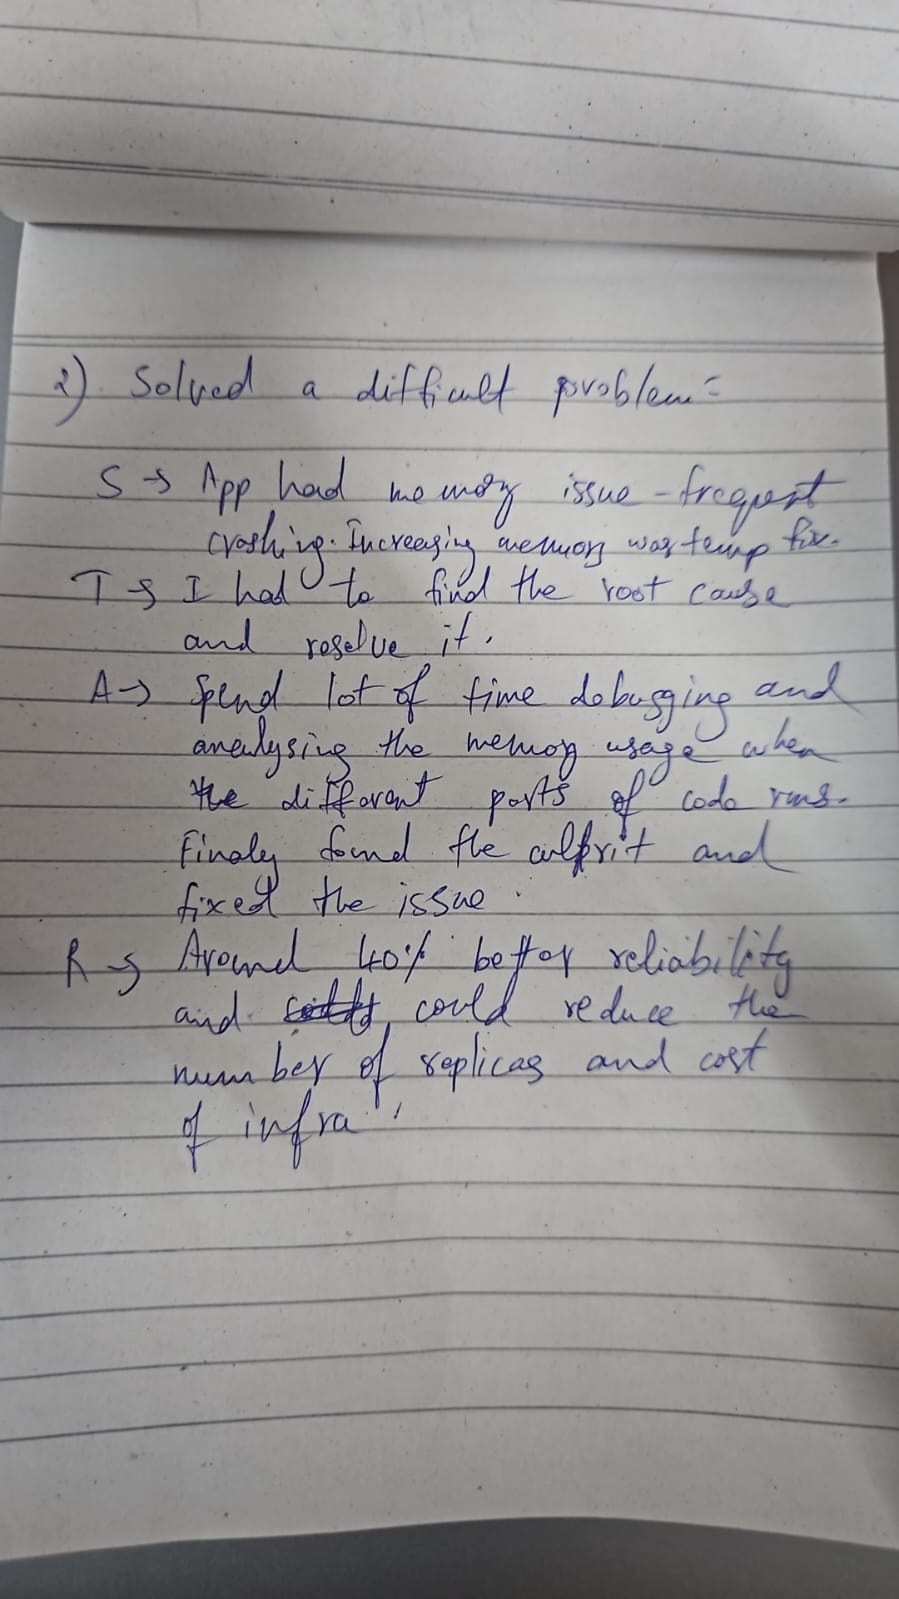 2) Solved a difficult problem:-
S → App had memory issue - frequent
crashing. Increasing memory was temp fix.
T → I had to find the root cause
and resolve it.
A → Spend lot of time debugging and
analysing the memoy usage when
the different parts of code runs.
Finaly found the culprit and
fixed the issue.
R → Around 40% better reliability
and could reduce the
number of replicas and cost
of infra.